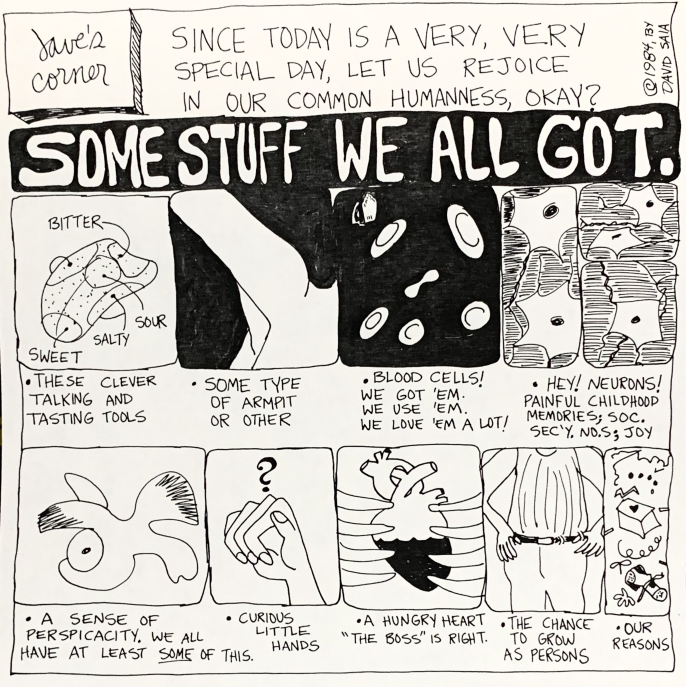 Dave's
corner
SINCE TODAY IS A VERY, VERY
SPECIAL DAY, LET US REJOICE
IN OUR COMMON HUMANNESS, OKAY?
©1984, BY
DAVID SAIA
SOME STUFF WE ALL GOT.
BITTER
SOUR
SALTY
SWEET
• THESE CLEVER
TALKING AND
TASTING TOOLS
• SOME TYPE
OF ARMPIT
OR OTHER
• BLOOD CELLS!
WE GOT 'EM.
WE USE 'EM.
WE LOVE 'EM A LOT!
• HEY! NEURONS!
PAINFUL CHILDHOOD
MEMORIES; SOC.
SEC'Y. NO.S; JOY
?
• A SENSE OF
PERSPICACITY, WE ALL
HAVE AT LEAST SOME OF THIS.
• CURIOUS
LITTLE
HANDS
• A HUNGRY HEART
"THE BOSS" IS RIGHT.
• THE CHANCE
TO GROW
AS PERSONS
• OUR
REASONS